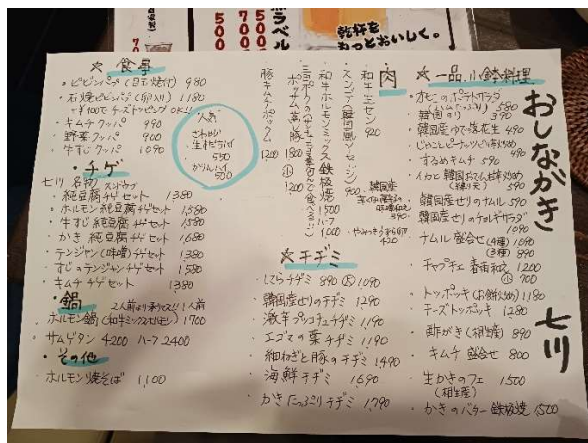 乾杯を
もっとおいしく。
おしながき
七川
☆ 一品、小鉢料理
オモニのポテトサラダ
580
韓国のり 390
韓国産ゆで落花生 490
じゃことピーナッツピリ辛炒め
するめキムチ 590
イカと韓国おでん甘辛炒め
590
・韓国産せりのナムル 590
韓国産せりのチョレギサラダ
1090
ナムル盛合せ (4種) 1090
(3種) 890
・チャプチェ 春雨和え 1200
小 700
・トッポッキ(お餅炒め) 1180
・チーズトッポッキ 1280
・酢がき(相生産) 890
・キムチ 盛合せ 800
・生かきのフェ 1500
(相生産)
・かきのバター鉄板焼 1500
肉
・和牛ユッケ 920
和牛ホルモンミックス鉄板焼
1500
ハーフ 1000
ポッサム 蒸し豚 1800
小 1200
豚キムチポックム 1200
☆ チヂミ
・にらチヂミ 890 大 1090
・韓国産せりのチヂミ 1290
・激辛プッコチュチヂミ 1190
・エゴマの葉チヂミ 1190
・細ねぎと豚のチヂミ 1490
・海鮮チヂミ 1690
・かきたっぷりチヂミ 1790
☆ 食事
・ビビンバ (石焼) 980
・石焼ビビンバ (卵入り) 1180
+¥100でチーズトッピングOK!!
・キムチクッパ 990
・野菜クッパ 900
・牛すじクッパ 1090
人気
550
500
チゲ
七川 名物 スンドゥブ
・純豆腐チゲセット 1380
・ホルモン純豆腐チゲセット 1,580
・牛すじ純豆腐チゲセット 1580
・かき純豆腐チゲセット 1680
・テンジャン(味噌)チゲセット 1380
・すじのテンジャンチゲセット 1580
・キムチチゲセット 1380
・鍋
2人前より承ります!! 1人前
ホルモン鍋(和牛ミックスホルモン) 1700
・サムゲタン 4200 ハーフ 2400
・その他
・ホルモン焼そば 1,100